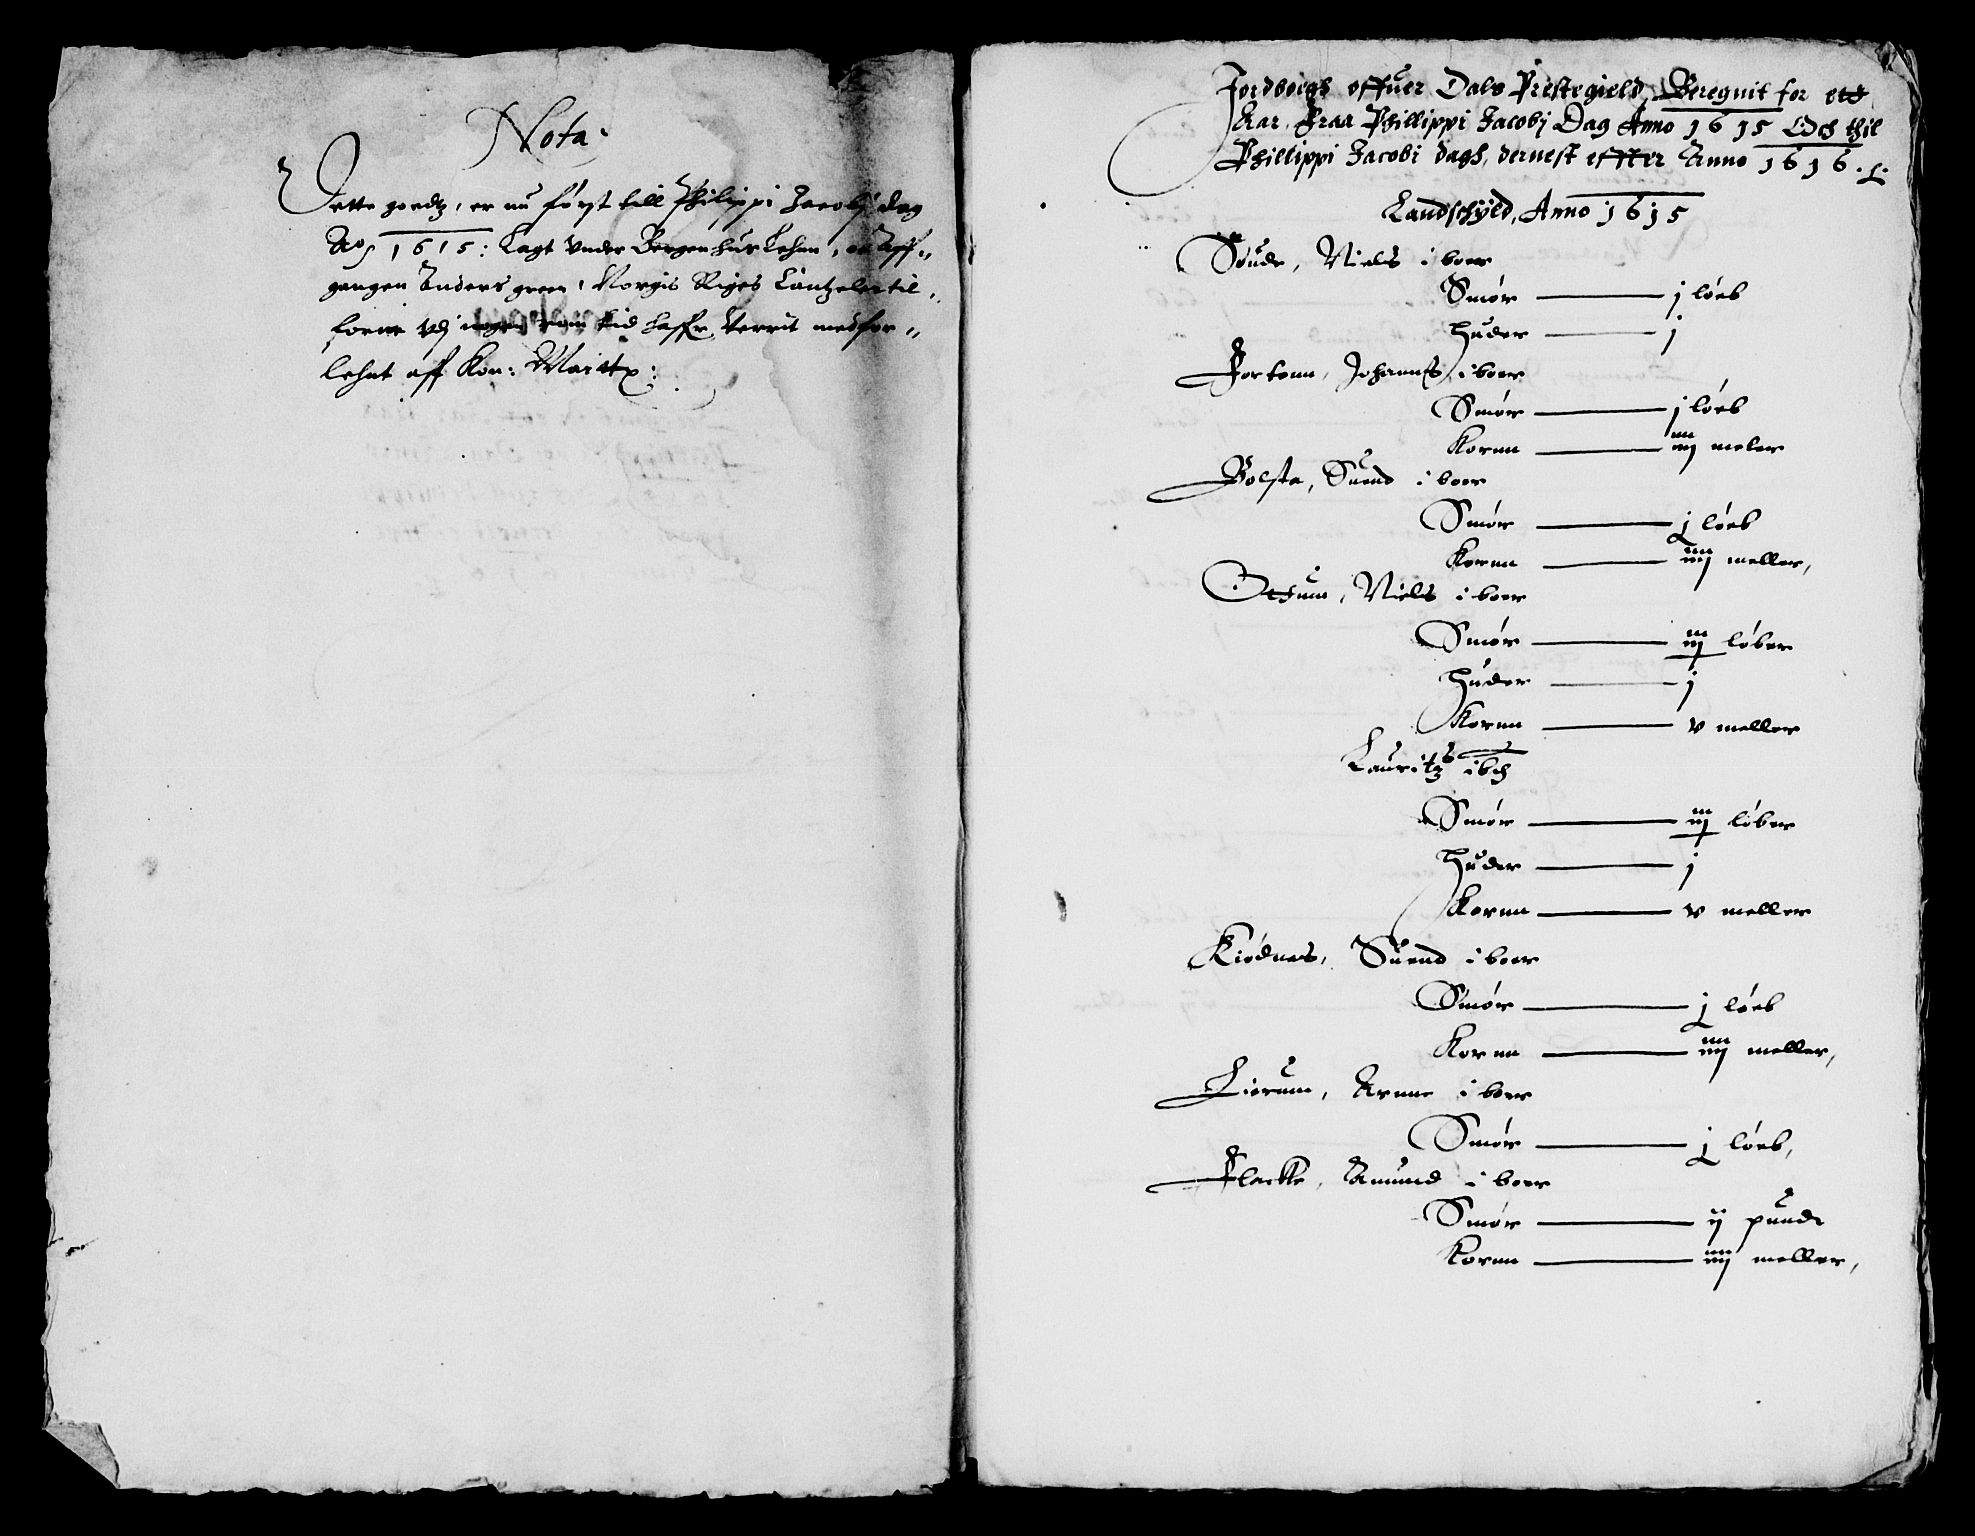 Nota
Dette goedtz, er nu først till Philippi Jacobj dag
Aoͦ 1615: Lagt Vnder Bergenhus Lehn, aff„
gangen Anders green, Norgis Riges Cantzeler til„
forne Vdj nogen rom tid haffr Verrit medfor„
lehnt aff Kon: Maittz:
Jordbogh offuer Dals Prestegield, Beregnit for ett
Aar, Fraa Phillippi Jacobj Dag Anno 1615 Och thil
Phillippi Jacobi dagh, dernest effter Anno 1616.
Landschyld, Anno 1615
Niels iboer
Smør — j løeb
Huder — j
Fortonn, Johannes iboer
Smør — j løeb
Kornn — iiij meler
Bolsta, Suend iboer
Smør — j løeb
Kornn — iiij meller,
Ottum, Niels iboer
Smør — iij løber
Huder — j
Kornn — v meller
Lauritz ibd
Smør — iij løber
Huder — j
Kornn — v meller
Kiødnes, Suend iboer
Smør — j løeb
Kornn — iiij meller,
Liørum, Arnne iboer
Smør — j løeb,
Flacke, Amund iboer
Smør — ij pund
Kornn — iiij meller,